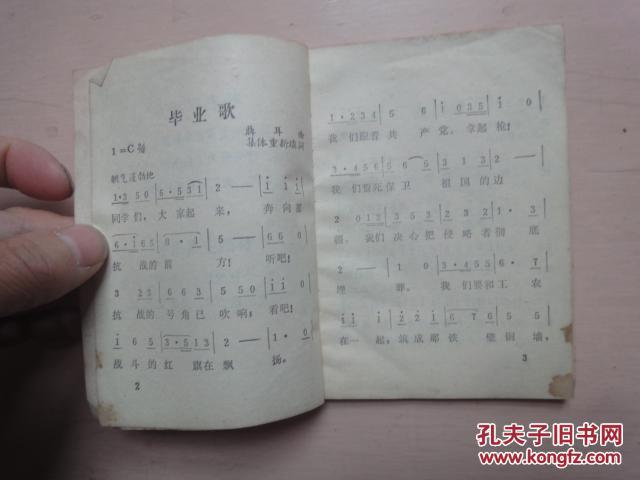 毕业歌
聂耳 曲
1=C 2/4 集体重新填词
朝气蓬勃地
1·3 5 0 | 6·5 3 1 | 2 — | i i i
同学们,大家起来,奔向
6·i 6 5 | 3·1 | 5 — | 6 6 0
抗战的前方!听吧!
3 2 5 | 6 6 3 | 5 5 0 | i i 0
抗战的号角已吹响;看吧!
i 6 5 | 3·5 1 3 | 2 — | 1·0
战斗的红旗在飘扬。
2
1·2 3 4 | 5 6 | i 0 3 5 | i 0
我们跟着共产党,拿起枪!
3·4 5 6 | 5 6 5 | 3 2
我们誓死保卫祖国的边
2 0 1 3 | 2 3 4 | 2 3 2 | 1·3
疆。我们决心把侵略者彻底
2 — | 1 0 | 3·4 5 5 | 6·7
埋葬。我们要和工农
i i | 2 2 i | 6 7 6 | 5 5
在一起,筑成那铁壁铜墙,
3
孔夫子旧书网
www.kongfz.com